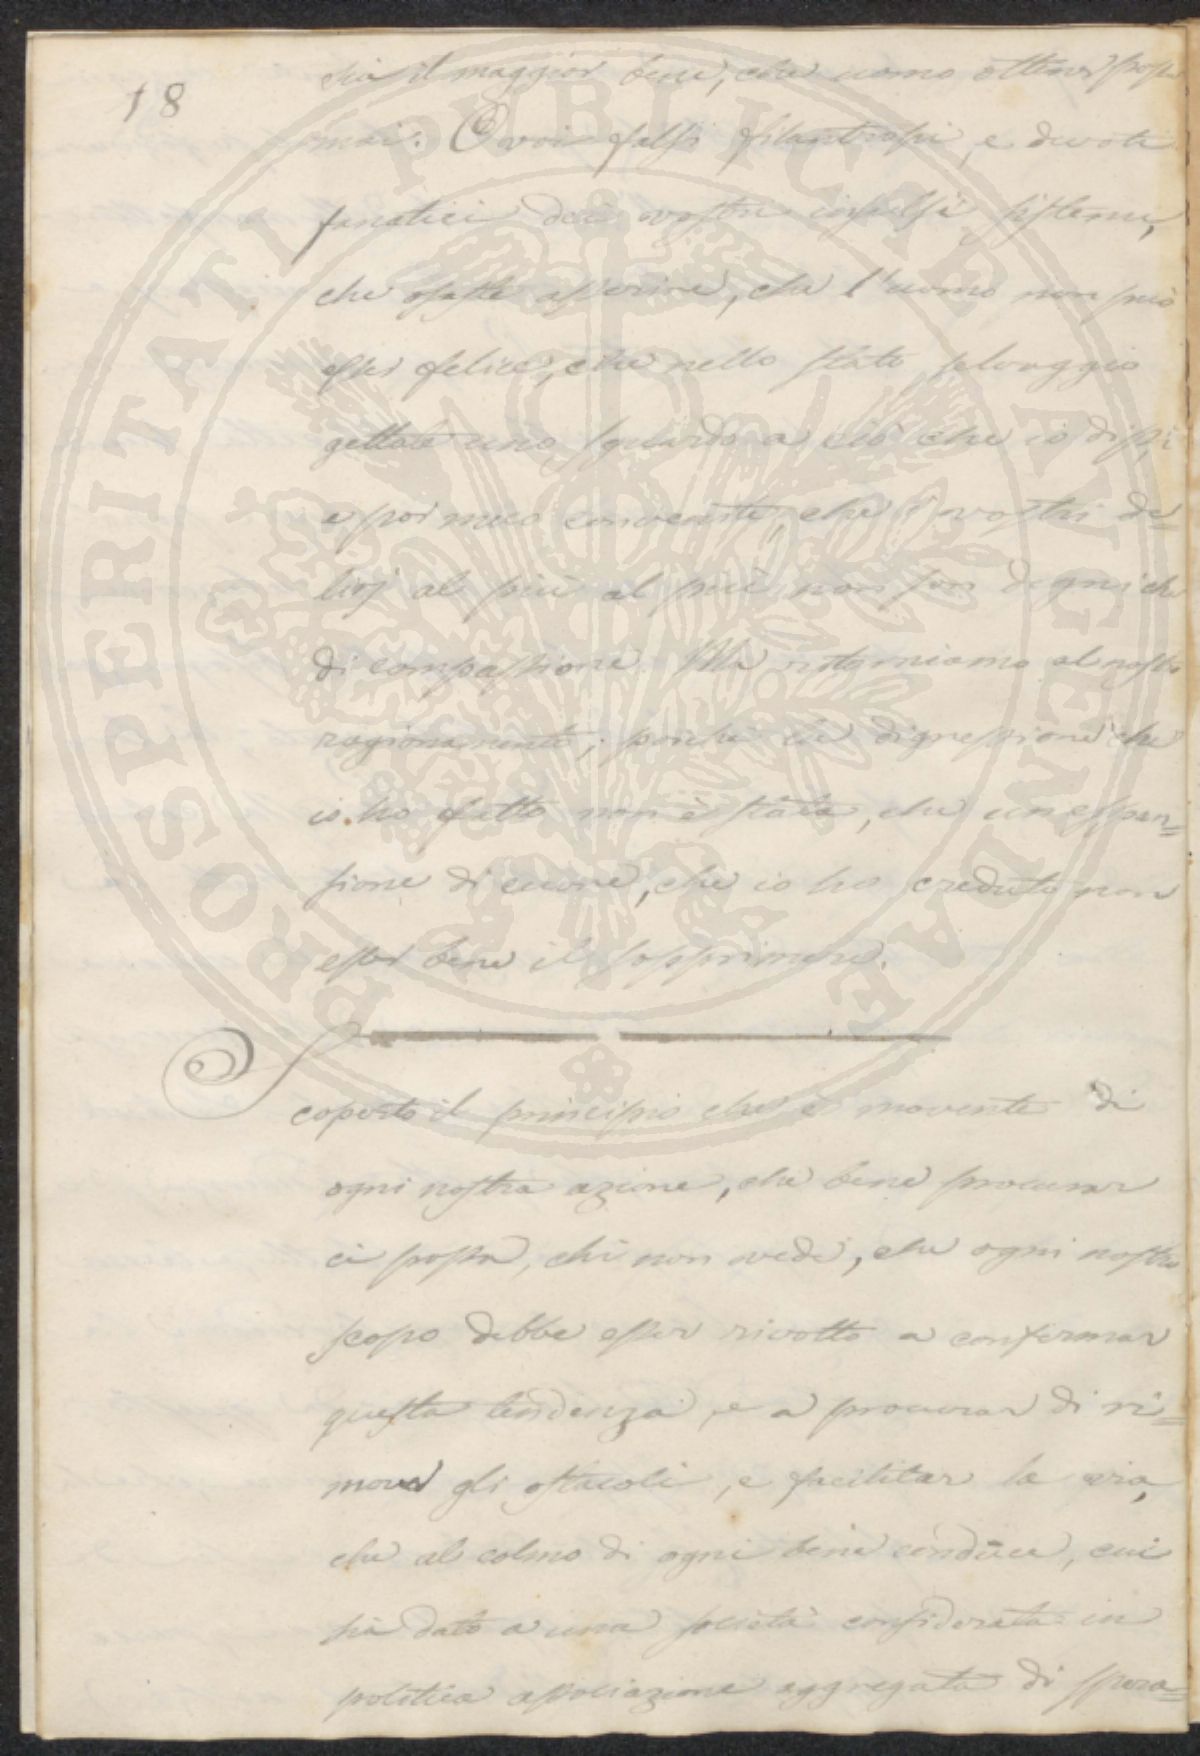 18
sia il maggior bene, che uomo ottener possa
mai. O voi falsi filantropi, e devoti
fanatici dei vostri insulsi sistemi,
che osaste asserire, che l'uomo non può
esser felice, che nello stato selvaggio
gettate uno sguardo a ciò che io dissi,
e poi meco convenite, che i vostri de=
lirj al più al più non son degni che
di compassione. Ma ritorniamo al nostro
ragionamento; poiché la digressione che
io ho fatto non è stata, che un espan=
sione di cuore, che io ho creduto non
esser bene il sopprimere.
Scoperto il principio che è movente di
ogni nostra azione, che bene procurar
ci possa, chi non vede, che ogni nostro
scopo debbe esser rivolto a confermar
questa tendenza, e a procurar di ri=
mover gli ostacoli, e facilitar la via,
che al colmo di ogni bene conduce, cui
sia dato a una società considerata in
politica associazione aggregata di spera=
PROSPERITATI PUBLICAE AUGENDAE